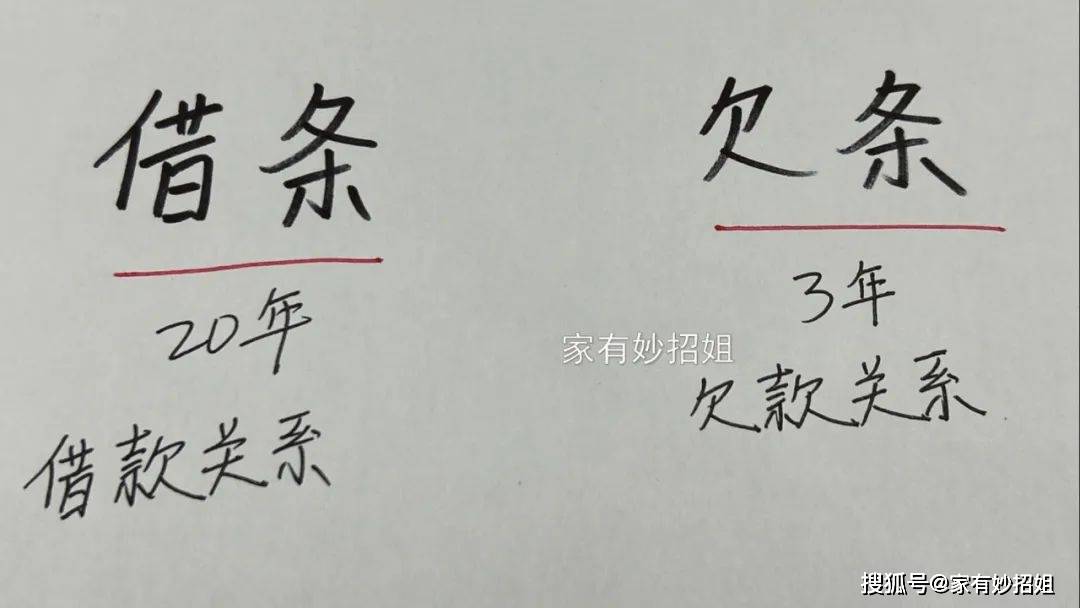 借条
20年
借款关系
欠条
3年
欠款关系
家有妙招姐
搜狐号@家有妙招姐